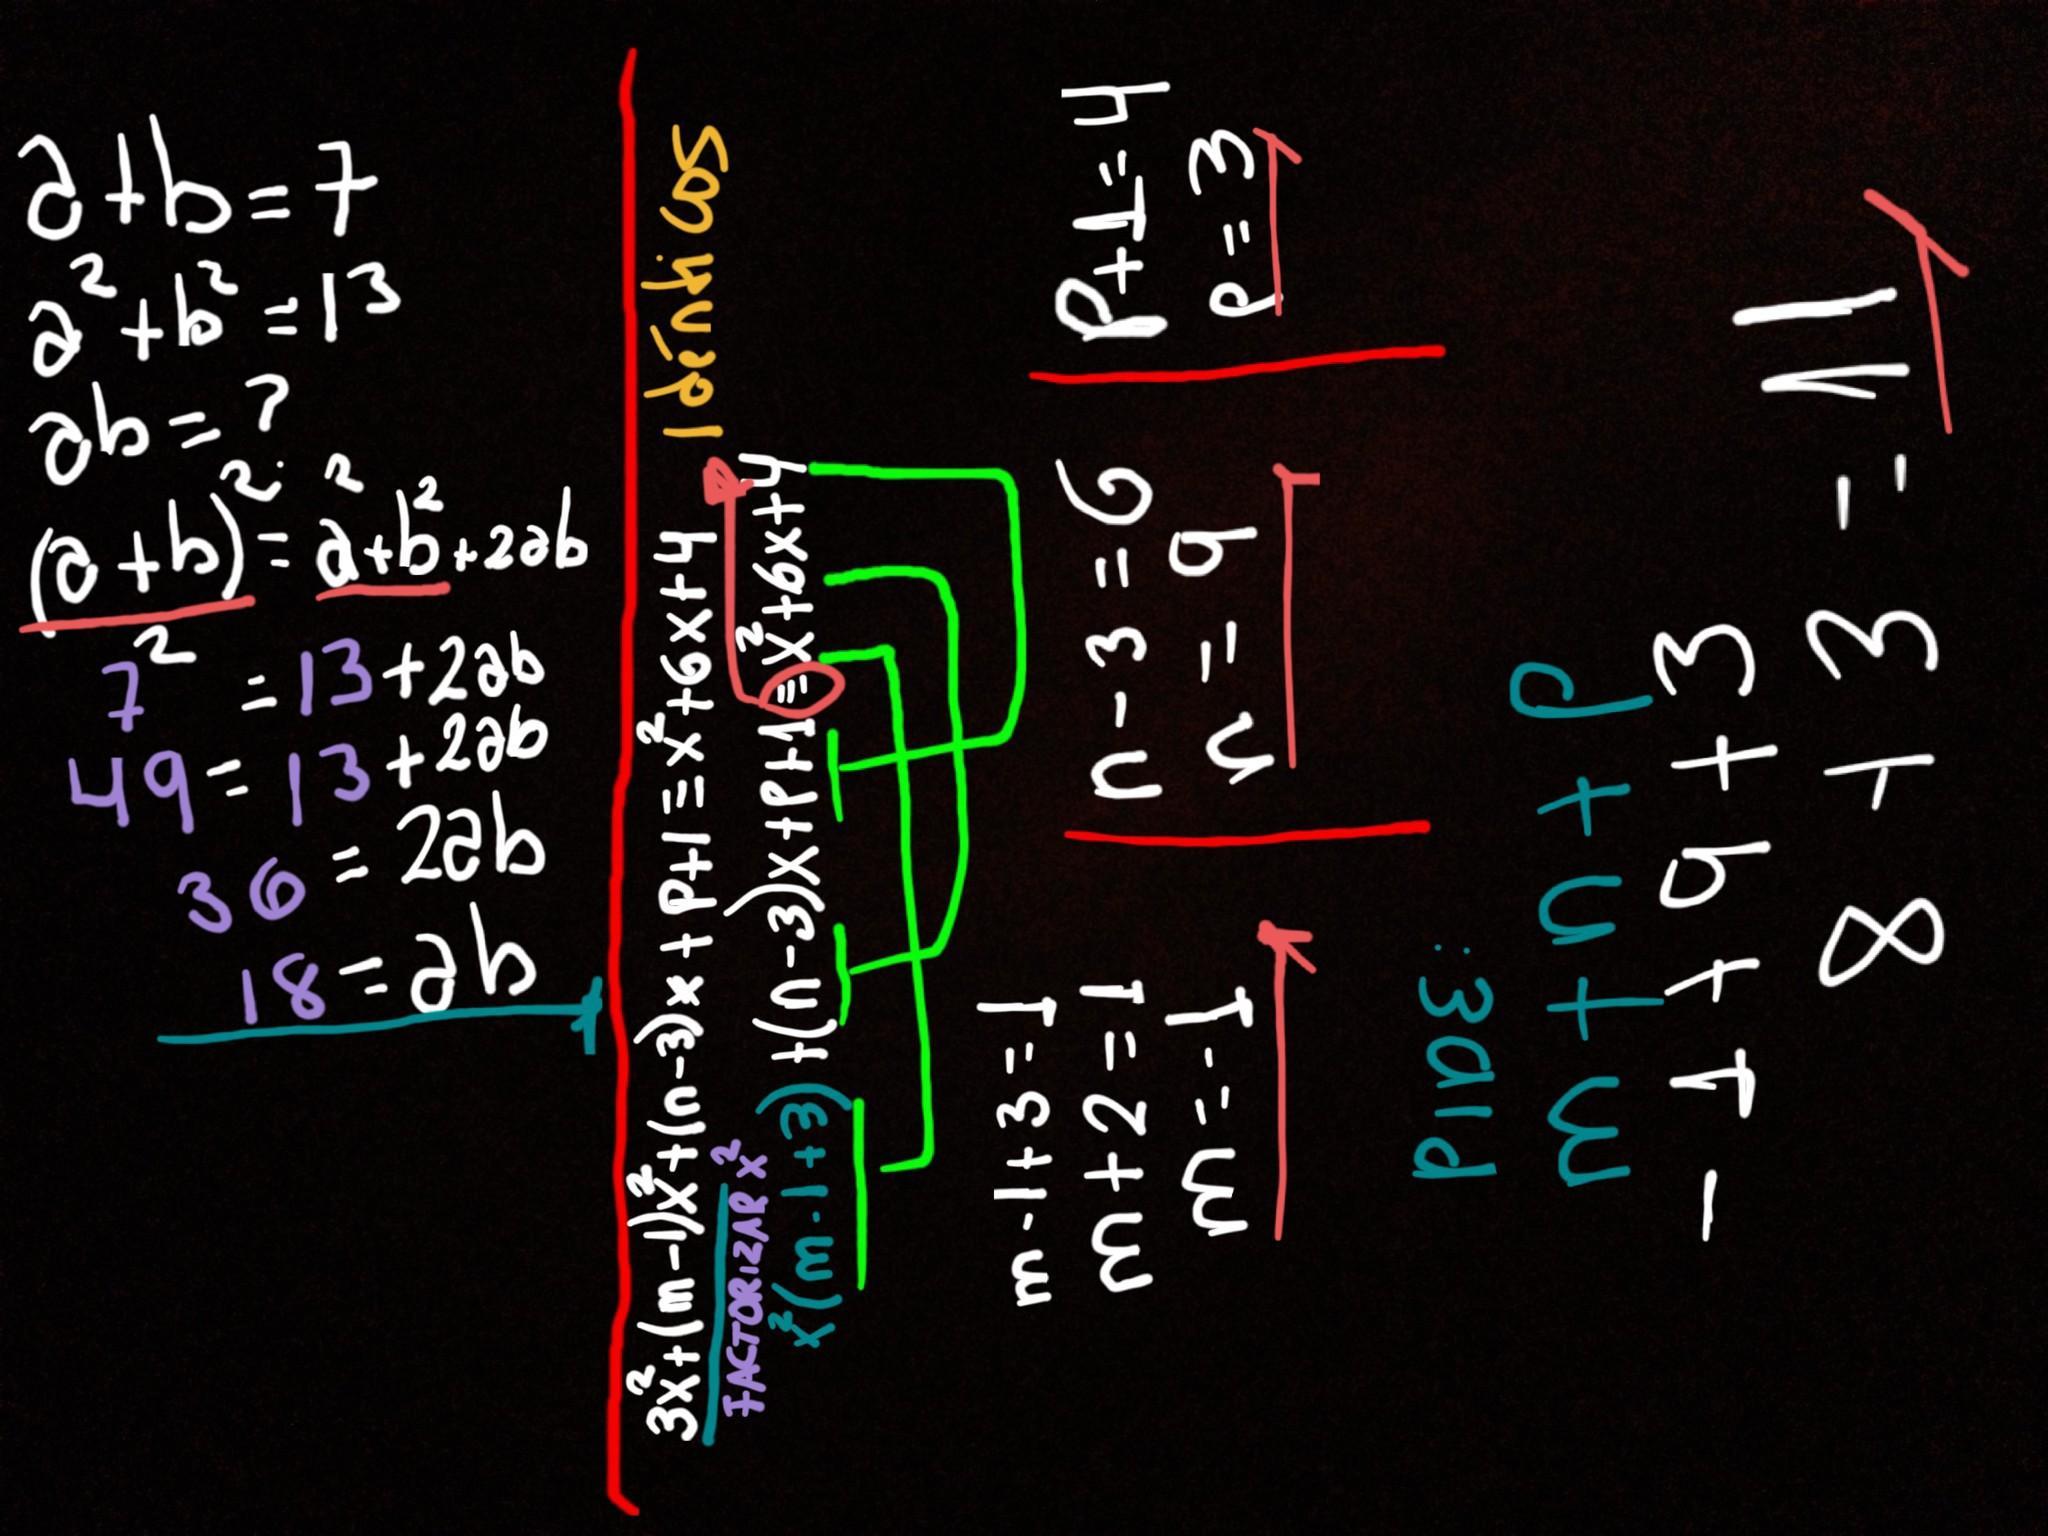 a+b=7
a²+b²=13
ab=?
(a+b)²=a²+b²+2ab
7²=13+2ab
49=13+2ab
36=2ab
18=ab
Idénticos
3x²+(m-1)x²+(n-3)x+p+1≡x²+6x+4
FACTORIZAR x²
x²(m-1+3)+(n-3)x+p+1≡x²+6x+4
m-1+3=1
m+2=1
m=-1
n-3=6
n=9
p+1=4
p=3
PIDE:
m+n+p
-1+9+3
8+3=11